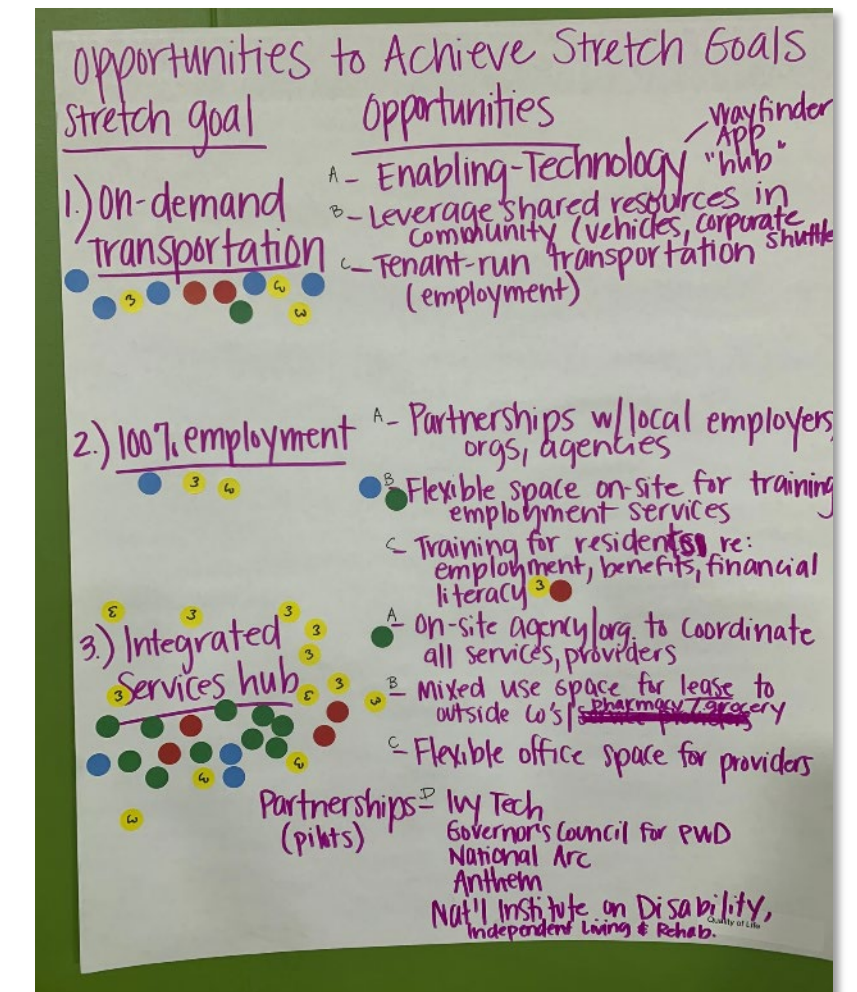 Opportunities to Achieve Stretch Goals
Stretch goal
Opportunities
1.) On-demand
transportation
3
3
3
A - Enabling-Technology
Wayfinder
App
"hub"
B - Leverage shared resources in
community (vehicles, corporate
shuttle
C - Tenant-run transportation
(employment)
2.) 100% employment
3
3
A - Partnerships w/local employers,
orgs, agencies
B - Flexible space on-site for training
employment services
C - Training for residents re:
employment, benefits, financial
literacy 3
3.) Integrated
Services hub
3
3
3
3
3
3
3
3
3
3
3
3
A - On-site agency/org. to coordinate
all services, providers
B - Mixed use space for lease to
outside co's/ pharmacy / grocery
C - Flexible office space for providers
Partnerships D - Ivy Tech
(pilots)
Governor's Council for PWD
National Arc
Anthem
Nat'l Institute on Disability,
Independent Living & Rehab.
Quality of Life